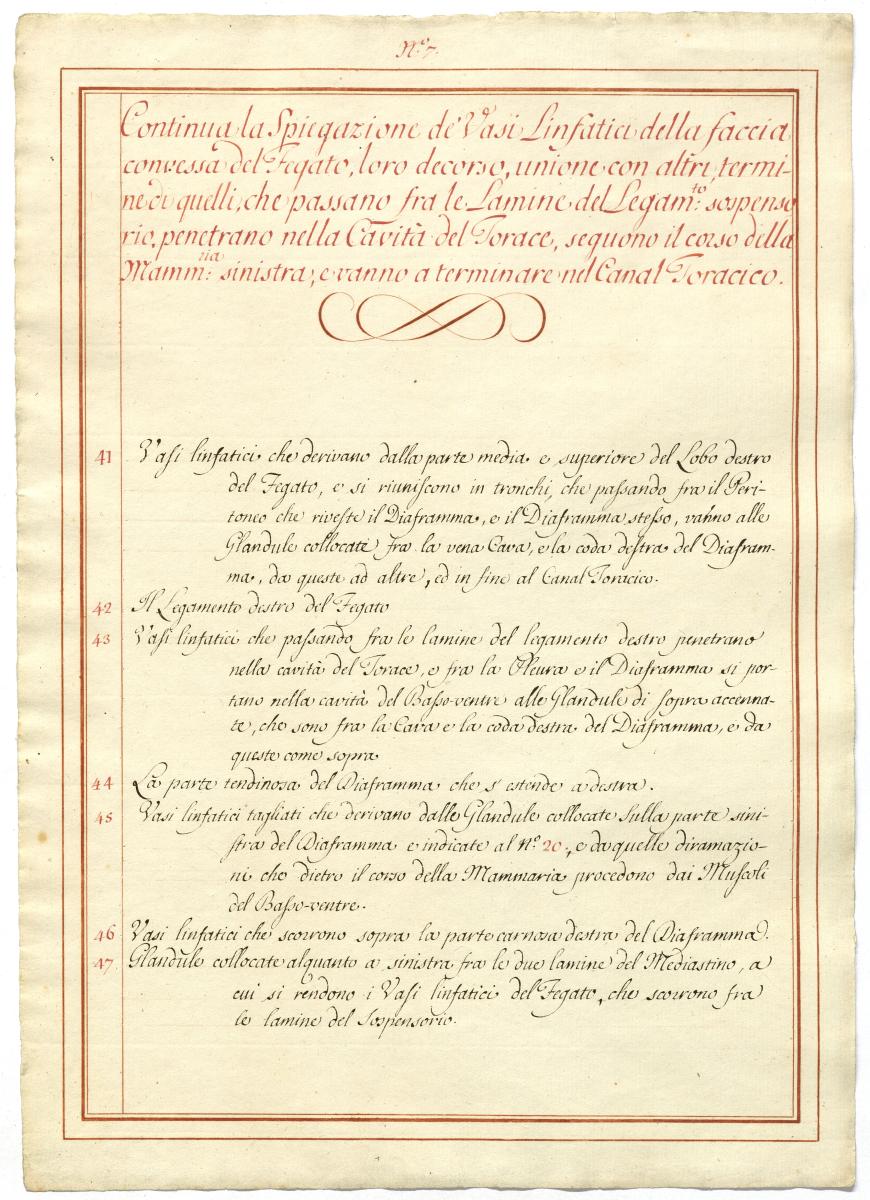 N.º 7.
Continua la Spiegazione de' Vasi Linfatici della faccia
convessa del Fegato, loro decorso, unione con altri, termi-
ne di quelli, che passano fra le Lamine del Legam.to sospenso
rio, penetrano nella Cavità del Torace, seguono il corso della
Mamm.ria sinistra, e vanno a terminare nel Canal Toracico.
41 Vasi linfatici che derivano dalla parte media e superiore del Lobo destro
del Fegato, e si riuniscono in tronchi, che passando fra il Peri-
toneo che riveste il Diaframma, e il Diaframma stesso, vanno alle
Glandule collocate fra la vena Cava, e la coda destra del Diafram-
ma, da queste ad altre, ed in fine al Canal Toracico.
42 Il Legamento destro del Fegato
43 Vasi linfatici che passando fra le lamine del legamento destro penetrano
nella cavità del Torace, e fra la Pleura e il Diaframma si por-
tano nella cavità del Basso-ventre alle Glandule di sopra accenna-
te, che sono fra la Cava e la coda destra del Diaframma, e da
queste come sopra
44 La parte tendinosa del Diaframma che s'estende a destra.
45 Vasi linfatici tagliati che derivano dalle Glandule collocate sulla parte sini-
stra del Diaframma e indicate al N.º 20., e da quelle diramazio-
ni che dietro il corso della Mammaria procedono dai Muscoli
del Basso-ventre.
46 Vasi linfatici che scorrono sopra la parte carnosa destra del Diaframma.
47 Glandule collocate alquanto a sinistra fra le due lamine del Mediastino, a
cui si rendono i Vasi linfatici del Fegato, che scorrono fra
le lamine del Sospensorio.